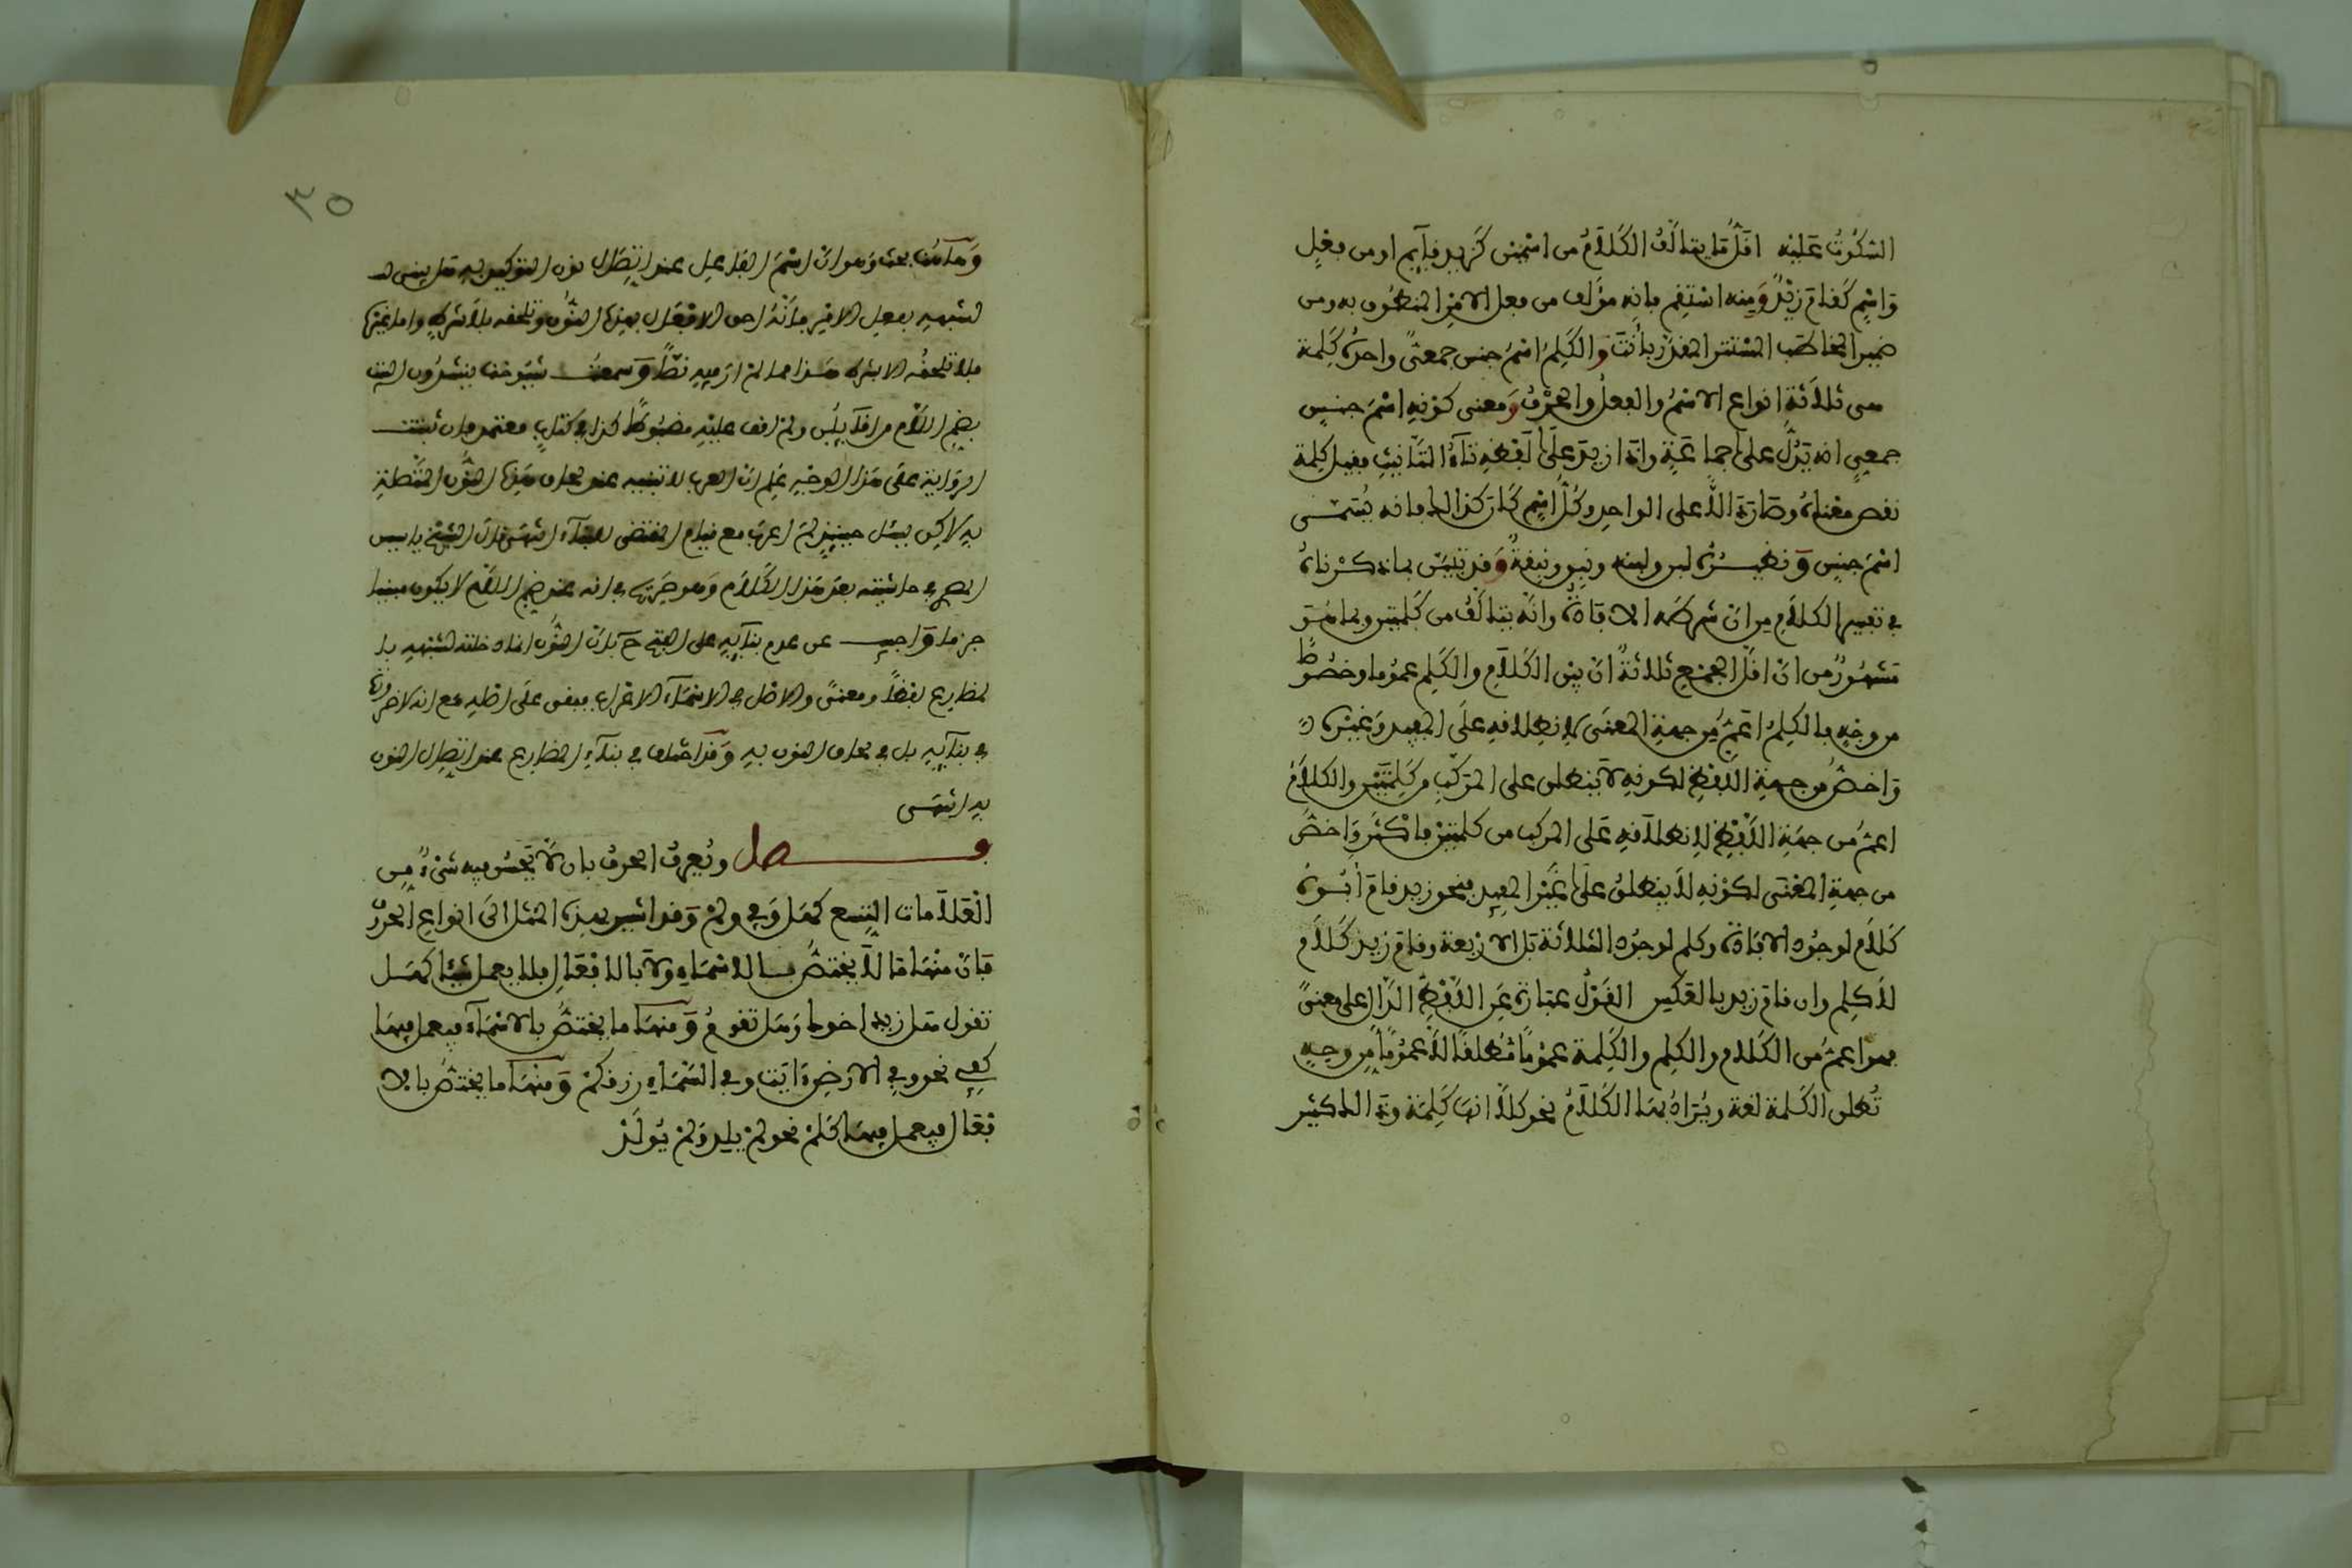 السكوت عليه اقل ما يتالف الكلام من اسمين كزيد قايم او من فعل
واسم كقام زيد ومنه استقم فانه مؤلف من فعل الامر المنطوق به ومن
ضمير المخاطب المستتر المقدر بانت والكلم اسم جنس جمعي واحده كلمة
من ثلاثة انواع الاسم والفعل والحرف ومعنى كونه اسم جنس
جمعي انه يدل على جماعة واذا زيد على لفظه تاء التانيث فقيل كلمة
نقص معناه وصار دالا على الواحد وكل اسم كان كذالك فانه يسمى
اسم جنس ونظيره لبن ولبنة ونبق ونبقة وقد تبين بما ذكرناه
في تفسير الكلام من ان شرطه الافادة وانه يتالف من كلمتين وبما هو
مشهور من ان اقل الجمع ثلاثة ان بين الكلام والكلم عموما وخصوصا
من وجه فالكلم اعم من جهة المعنى لانطلاقه على المفيد وغيره
واخص من جهة اللفظ لكونه لا ينطلق على المركب من كلمتين والكلام
اعم من جهة اللفظ لانطلاقه على المركب من كلمتين فاكثر واخص
من جهة المعنى لكونه لا ينطلق على غير المفيد فنحو زيد قام ابوه
كلام لوجود الافادة وكلم لوجود الثلاثة بل الاربعة وقام زيد كلام
لا كلم وان قام زيد بالعكس القول عبارة عن اللفظ الدال على معنى
فهو اعم من الكلام والكلم والكلمة عموما مطلقا لا عموما من وجه
تطلق الكلمة لغة ويراد بها الكلام نحو كلا انها كلمة وذالك كثير
٣٥
وهاهنا بحث وهو ان اسم الفاعل عند اتصال نون التوكيد به هل يبنى
لشبهه بفعل الامر فانه احق الافعال بهذه النون وتلحقه بلا شرط واما غيره
فلا تلحقه الا بشرط هذا مما لم ار فيه نصا وسمعت شيوخنا ينشدون البيت
بضم اللام من اقايلن ولم اقف عليه مضبوطا كذا في كتاب معتمد فان ثبتت
الرواية على هذا الوجه علم ان العرب لا تبنيه عند لحاق هذه النون المتصلة
به لاكن يسئل حينئذ لم اعرب مع قيام المقتضي للبناء انتهى قال الشيخ ياسين
في حاشيته بعد هذا الكلام وهو صريح في انه عند ضم اللام لا يكون مبنيا
جزما واجيب عن عدم بنائه على الفتح ح بان النون انما دخلته لشبهه بال
مضارع لفظا ومعنى والاصل في الاسماء الاعراب فبقي على اصله مع انه لا ضرورة
في بنايه بل في لحاق النون به وقد اختلف في بناء المضارع عند اتصال النون
به انتهى
فصل ويعرف الحرف بان لا يحسن فيه شيء من
العلامات التسع كهل وفي ولم وقد اشير بهذه المثل الى انواع الحرف
فان منها ما لا يختص بالاسماء ولا بالافعال فلا يعمل شيئا كهل
تقول هل زيد اخوك وهل تقوم ومنها ما يختص بالاسماء فيعمل فيها
كفي نحو وفي الارض ءايت وفي السماء رزقكم ومنها ما يختص بالا
فعال فيعمل فيها كلم نحو لم يلد ولم يولد